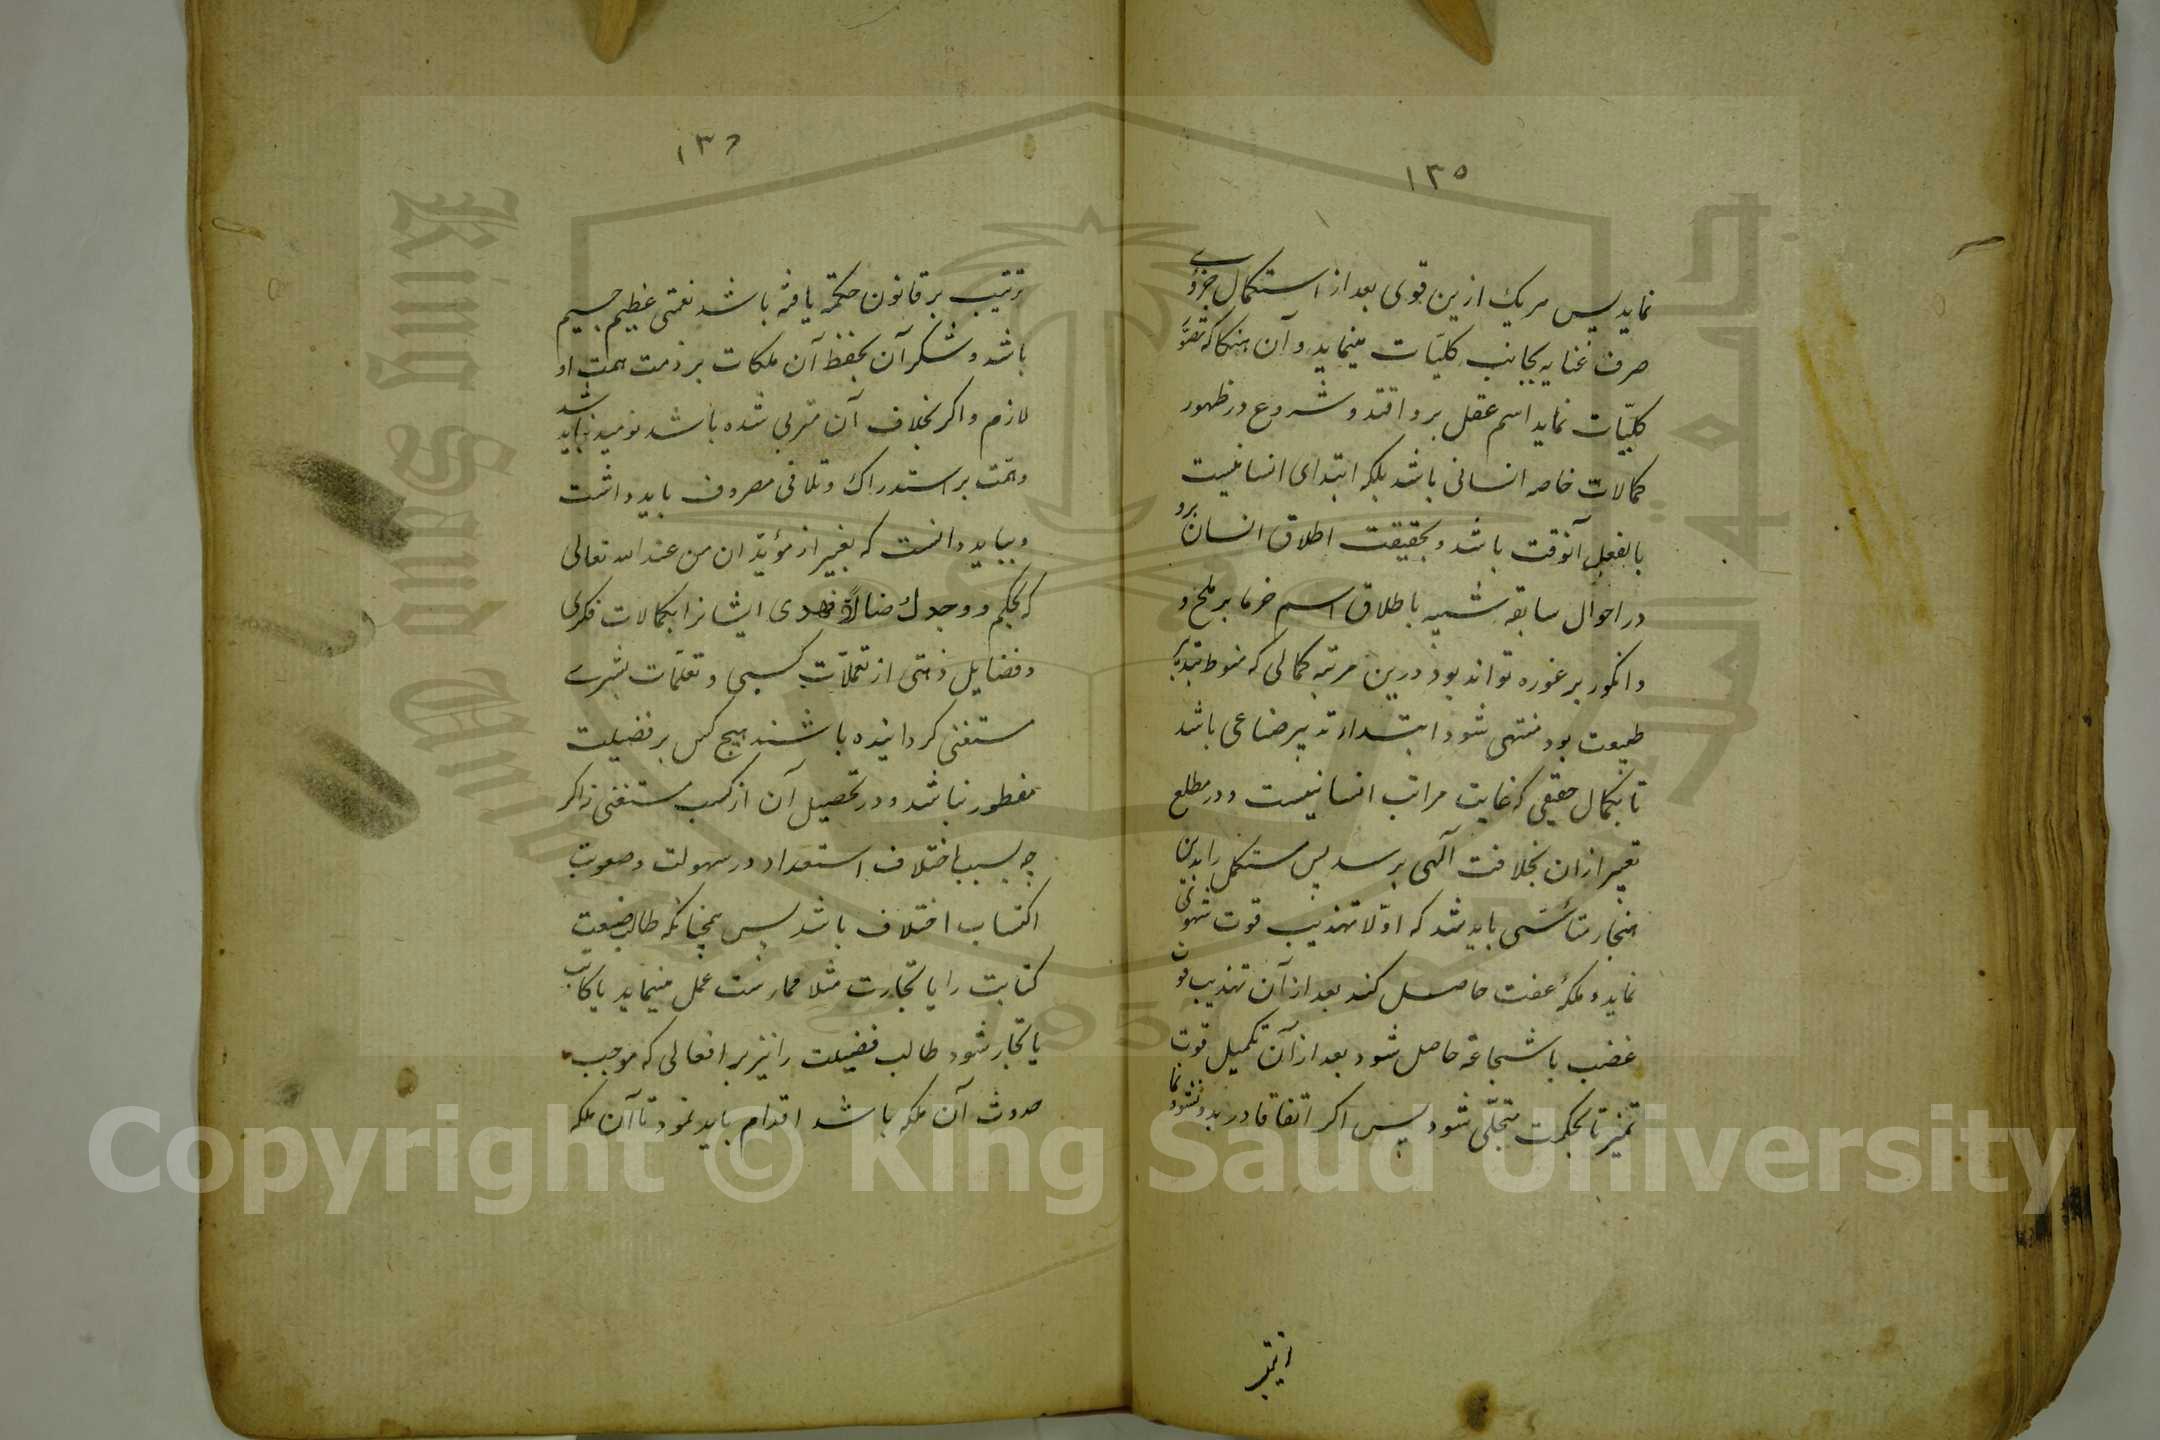 ١٣٥
نماید پس هر یک ازین قوی بعد از استکمال جزوے
صرف عنایه بجانب کلیّات مینماید و آن هنکا که تصوّ
کلیّات نماید اسم عقل برو افتد و شروع در ظهور
کمالات خاصه انسانی باشد بلکه ابتدای انسانیست
بالفعل آنوقت باشد و بحقیقت اطلاق انسان برو
در احوال سابقه شبیه باطلاق اسم خرما بر ملخ و
و انکور بر غوره تواند بود درین مرتبه کمالی که منوط بتدبیر
طبیعت بود منتهی شود ابتداء تدبیر صناعی باشد
تا بکمال حقیقی که غایت مراتب انسانیست و در مطلع
تعبیر ازان بخلافت آلهی برسد پس مستکمل را بدین
هنجار متأسّی باید شد که اوّلا تهذیب قوت شهوتی
نماید و ملکهٔ عفت حاصل کند بعد از آن تهذیب قوت
غضب با شجاعة حاصل شود بعد از آن تکمیل قوت
تمیز تا بحکمت متجلّی شود پس اکر اتفاقا در بدو نشو و نما
ترتیب
١٣٦
ترتیب بر قانون حکمة یافته باشد نعمتی عظیم جسیم
باشد و شکر آن بحفظ آن ملکات بر ذمت همت او
لازم و اکر بخلاف آن متربی شده باشد نومید نباید شد
و همّت بر استدراک و تلافی مصروف باید داشت
و بباید دانست که بغیر از مؤیّدان من عند الله تعالی
که بحکم و وجدك ضالاً فهدى ایشانرا بکمالات فکری
و فضایل ذهنی از تعملات کسبی و تعلمات بشرے
مستغنی کردانیده باشند هیچ کس بر فضیلت
مفطور نباشد و در تحصیل آن از کسب مستغنی نه اکر
چه بسبب اختلاف استعداد در سهولت و صعوبت
اکتساب اختلاف باشد پس همچنانکه طالب صنعت
کتابت را یا تجارت مثلا ممارست عمل مینماید یا کاتب
یا تجار شود طالب فضیلت را نیز بر افعالی که موجب
حدوث آن ملکه باشد اقدام باید نمود تا آن ملکه
Copyright © King Saud University
1957